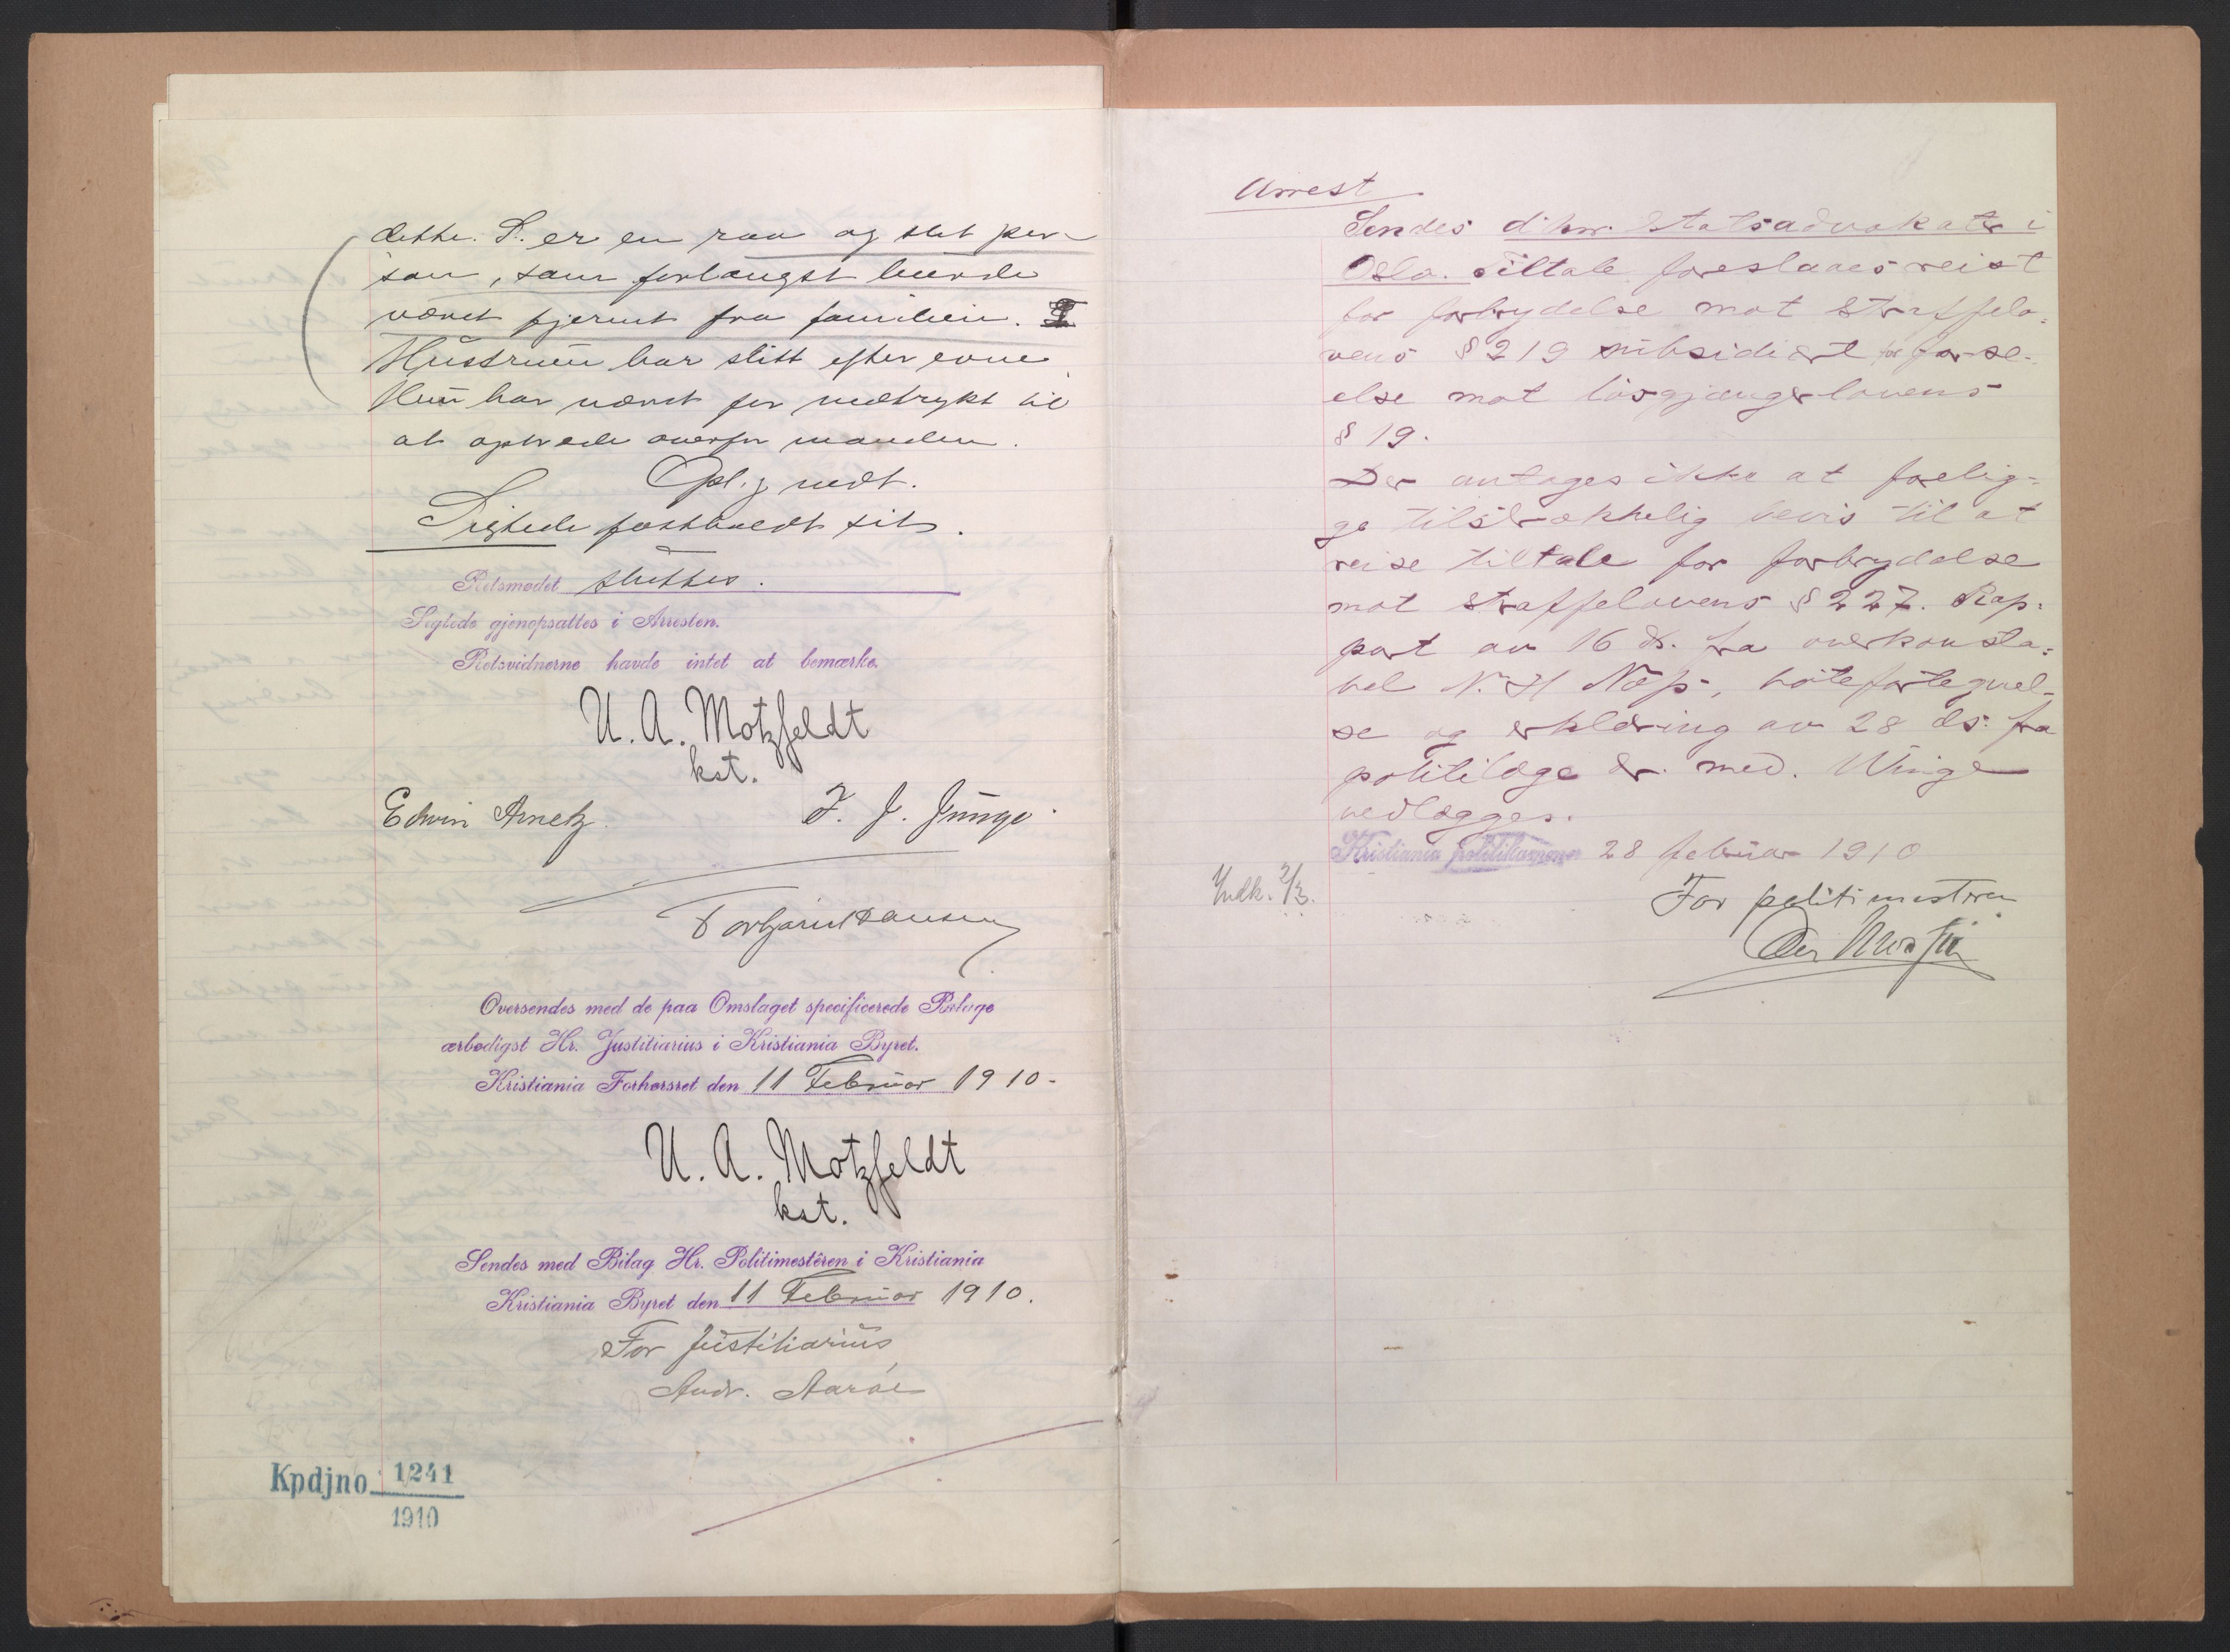 dette. S. er en raa og slet per-
son, som forlængst burde
været fjernet fra familien.
Hustruen har slitt efter evne.
Hun har været for nedtrykt til
at optræde overfor manden.
Opl. j vedt.
Sigtede fastholdt sit.
Retsmødet sluttes.
Sigtede gjenopsattes i Arresten.
Retsvidnerne havde intet at bemærke.
U. A. Motzfeldt
kst.
Edwin Arnetz. F. J. Junge.
Torbjørn Hansen
Oversendes med de paa Omslaget specificerede Bilage
ærbødigst Hr. Justitiarius i Kristiania Byret.
Kristiania Forhørsret den 11 Februar 1910.
U. A. Motzfeldt
kst.
Sendes med Bilag Hr. Politimesteren i Kristiania
Kristiania Byret den 11 Februar 1910.
For Justitiarius
Andr. Aarøe
Kpdjno 1241
1910
Arrest
Sendes d'hrr. Statsadvokater i
Oslo. Tiltale foreslaaes reist
for forbrydelse mot straffelo-
vens § 219 subsidiært for forse-
else mot løsgjængerlovens
§ 19.
Der antages ikke at forelig-
ge tilstrækkelig bevis til at
reise tiltale for forbrydelse
mot straffelovens § 227. Rap-
port av 16 ds. fra overkonsta-
bel N. H. Næss, bøtefortegnel-
se og erklæring av 28 ds. fra
politilæge dr. med. Winge
vedlægges.
Kristiania politikammer 28 februar 1910
Indk. 2/3.
For politimesteren